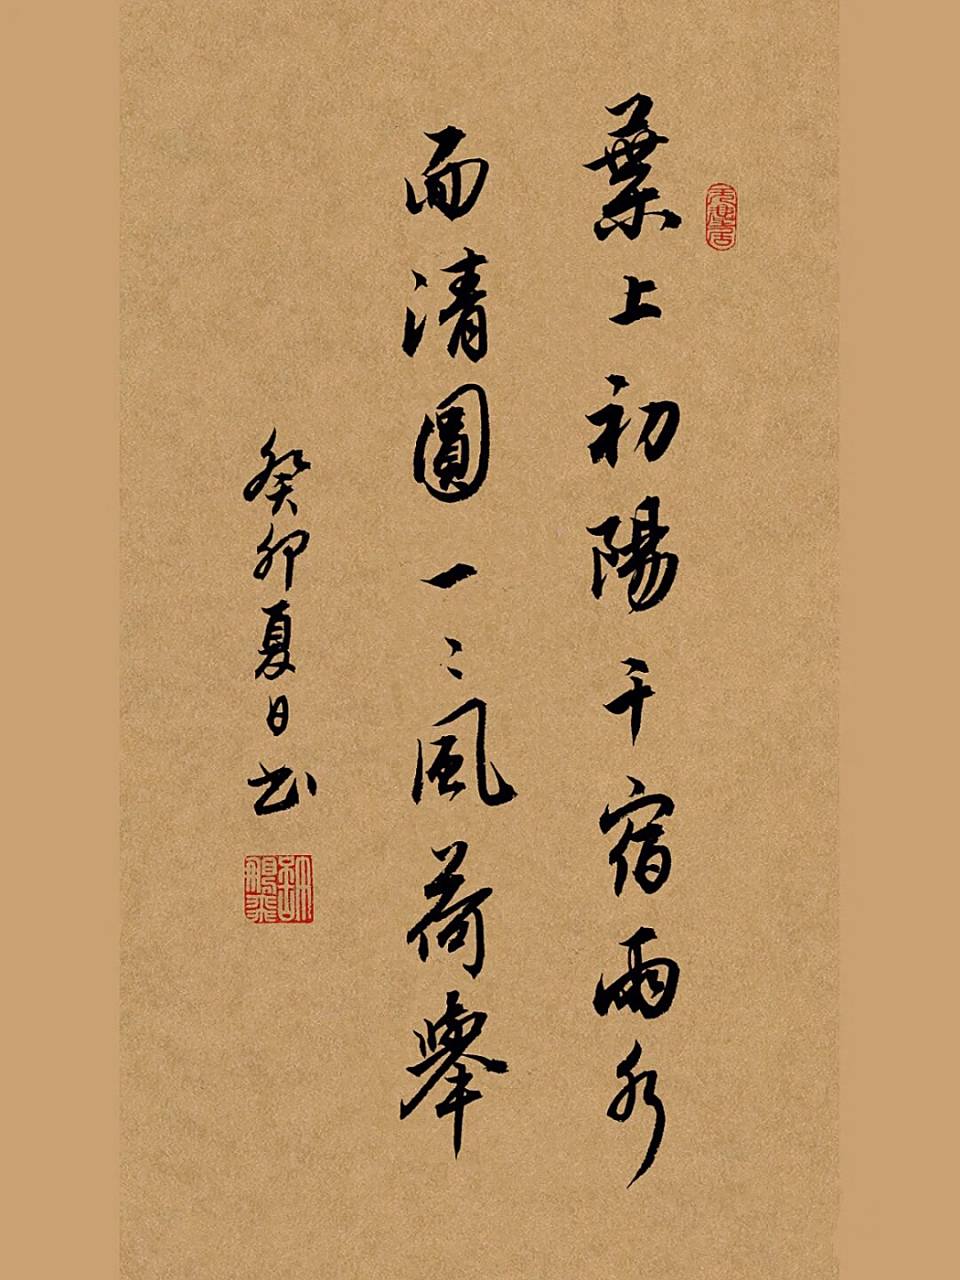 葉上初陽干宿雨水
面清圓一〻風荷舉
癸卯夏日书